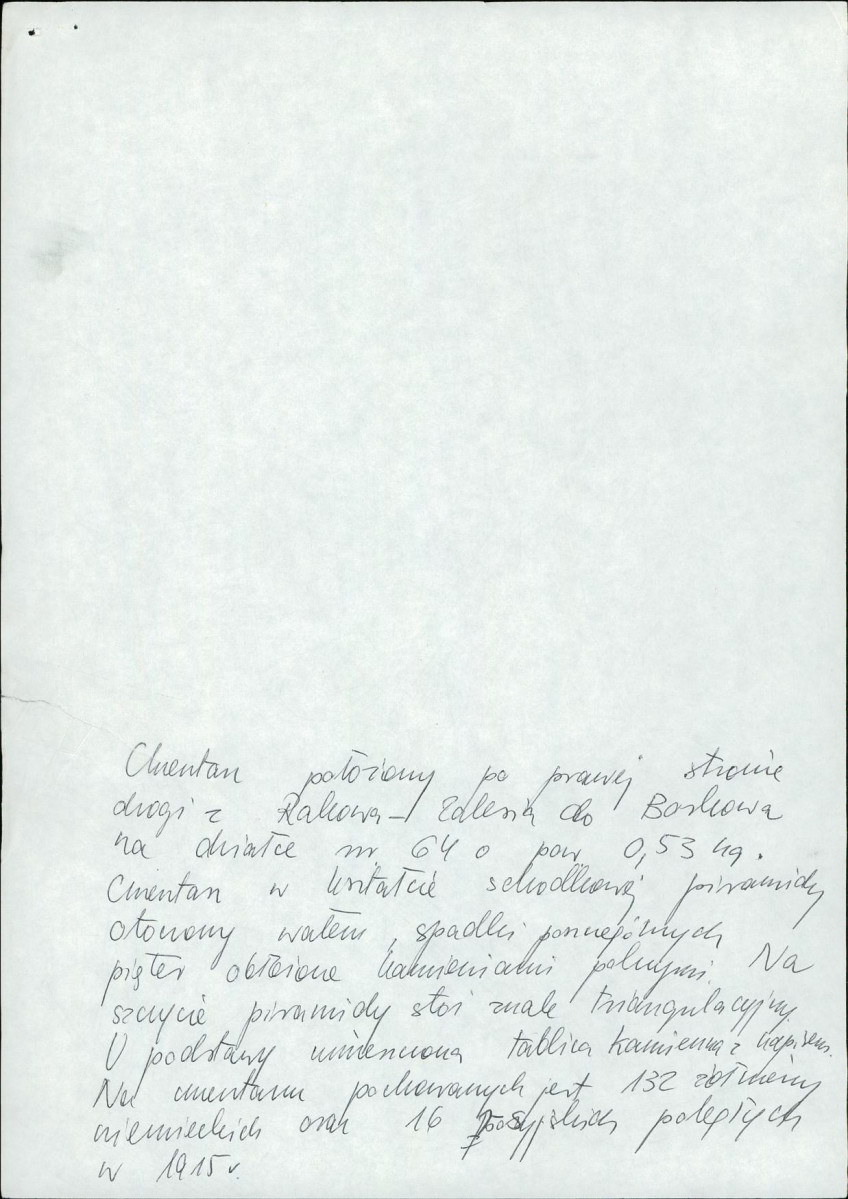 Cmentarz położony po prawej stronie
drogi z Rakowa-Zalesia do Borkowa
na działce nr 64 o pow 0,53 ha.
Cmentarz w kształcie schodkowej piramidy
otoczony wałem, spadki poszczególnych
pięter obłożone kamieniami polnymi. Na
szczycie piramidy stoi znak triangulacyjny.
U podstawy umieszczona tablica kamienna z napisem.
Na cmentarzu pochowanych jest 132 żołnierzy
niemieckich oraz 16 rosyjskich poległych
w 1915 r.